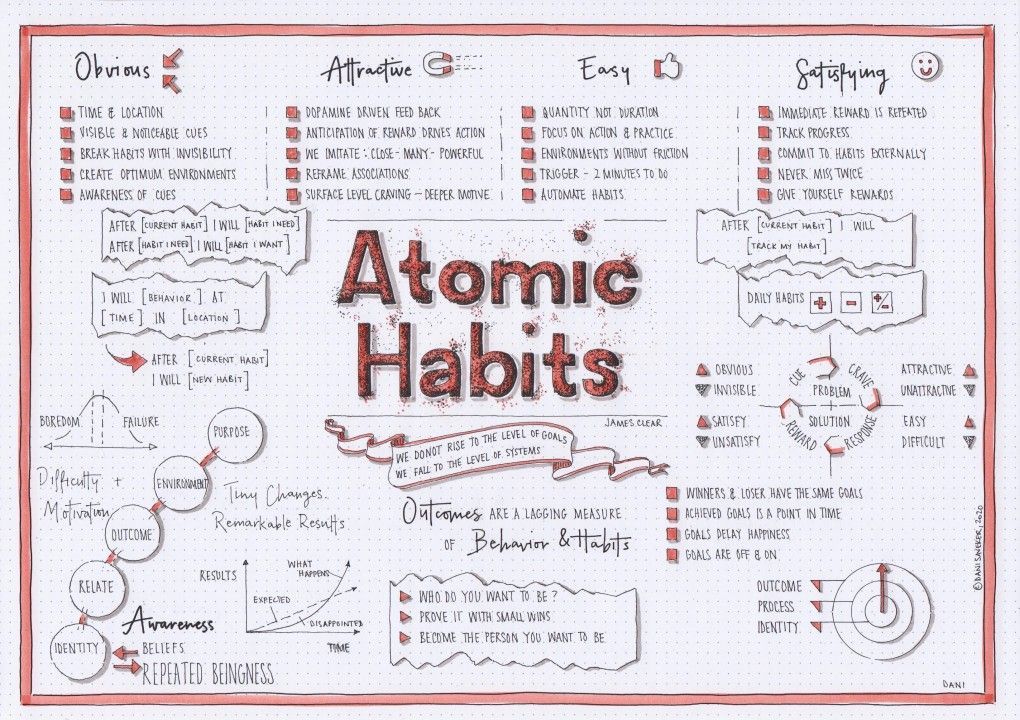 Obvious
TIME & LOCATION
VISIBLE & NOTICEABLE CUES
BREAK HABITS WITH INVISIBILITY
CREATE OPTIMUM ENVIRONMENTS
AWARENESS OF CUES
Attractive
DOPAMINE DRIVEN FEED BACK
ANTICIPATION OF REWARD DRIVES ACTION
WE IMITATE: CLOSE - MANY - POWERFUL
REFRAME ASSOCIATIONS
SURFACE LEVEL CRAVING - DEEPER MOTIVE
Easy
QUANTITY NOT DURATION
FOCUS ON ACTION & PRACTICE
ENVIRONMENTS WITHOUT FRICTION
TRIGGER - 2 MINUTES TO DO
AUTOMATE HABITS
Satisfying
IMMEDIATE REWARD IS REPEATED
TRACK PROGRESS
COMMIT TO HABITS EXTERNALLY
NEVER MISS TWICE
GIVE YOURSELF REWARDS
AFTER [CURRENT HABIT] I WILL [HABIT I NEED]
AFTER [HABIT I NEED] I WILL [HABIT I WANT]
I WILL [BEHAVIOR] AT
[TIME] IN [LOCATION]
AFTER [CURRENT HABIT]
I WILL [NEW HABIT]
Atomic
Habits
JAMES CLEAR
WE DO NOT RISE TO THE LEVEL OF GOALS
WE FALL TO THE LEVEL OF SYSTEMS
AFTER [CURRENT HABIT] I WILL
[TRACK MY HABIT]
DAILY HABITS + - +/-
OBVIOUS
INVISIBLE
SATISFY
UNSATISFY
CUE
CRAVE
PROBLEM
SOLUTION
REWARD
RESPONSE
ATTRACTIVE
UNATTRACTIVE
EASY
DIFFICULT
BOREDOM
FAILURE
Difficulty +
Motivation
PURPOSE
ENVIRONMENT
OUTCOME
RELATE
IDENTITY
Tiny Changes.
Remarkable Results
Outcomes ARE A LAGGING MEASURE
OF Behavior & Habits
WINNERS & LOSER HAVE THE SAME GOALS
ACHIEVED GOALS IS A POINT IN TIME
GOALS DELAY HAPPINESS
GOALS ARE OFF & ON
RESULTS
WHAT
HAPPENS
EXPECTED
DISAPPOINTED
TIME
Awareness
BELIEFS
REPEATED BEINGNESS
WHO DO YOU WANT TO BE?
PROVE IT WITH SMALL WINS
BECOME THE PERSON YOU WANT TO BE
OUTCOME
PROCESS
IDENTITY
DANI